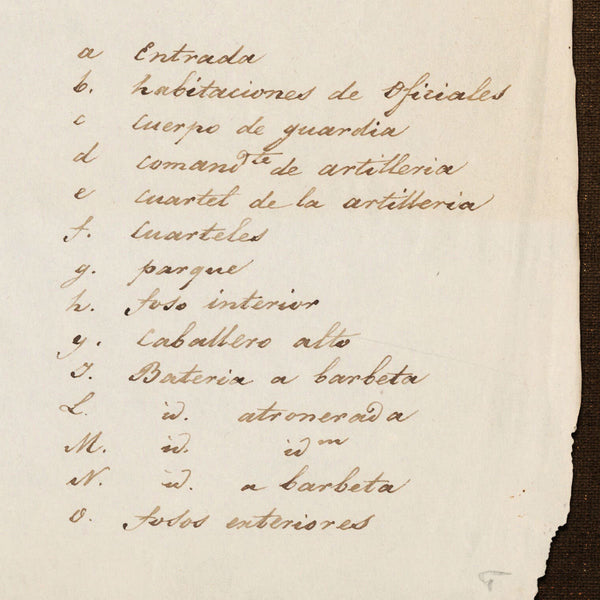 a Entrada
b. habitaciones de Oficiales
c cuerpo de guardia
d comand.te de artilleria
e cuartel de la artilleria
f. Cuarteles
g. parque
h. foso interior
y. Caballero alto
J. Bateria a barbeta
L. id. atronerada
M. id. idm
N. id. a barbeta
O. fosos enteriores